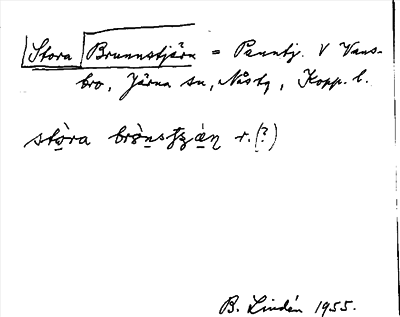 Stora Brunnstjärn = Panntj. V Vans-
bro, Järna sn, Nås tg, Kopp. l.
stòra brònstjä́ɳ r. (?)
B. Lindén 1955.